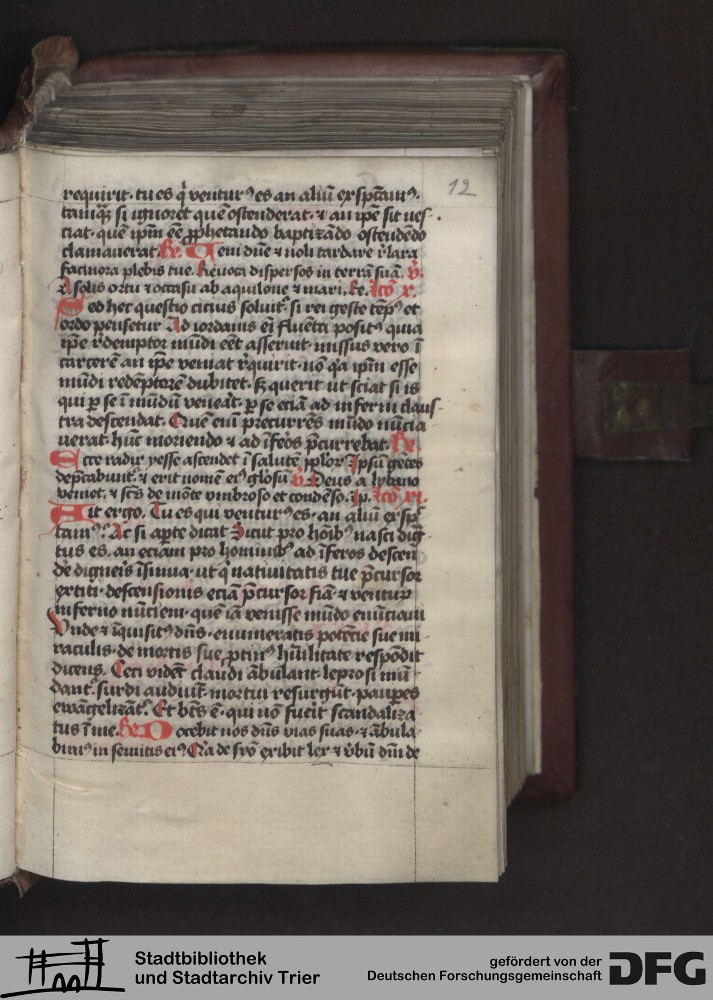 12
requirit. tu es q̇ ventur⁹ es an aliū exspc̄tam⁹.
tamq̄ȝ si ignoret quē ostenderat. ⁊ an ip̄e sit nes
ciat. quē ip̄m eē ꝓphetando baptizādo ostendēdo
clamauerat. Re. Ueni dn̄e ⁊ noli tardare r̄laxa
facinora plebis tue. Reuoca dispersos in terrā suā. v̄.
A solis ortu ⁊ occasu ab aquilone ⁊ mari. Re. lc̄o x.
Sed hec questio cicius soluit᷑ si rei geste tēp⁹ et
ordo pensetur Ad iordanis em̄ fluēta posit⁹ quia
ip̄e r̄demptor mūdi eēt asseruit. missus vero ī
carcerē an ip̄e veniat r̄quirit. nō q̇a ip̄m esse
mūdi redēptorē dubitet. sȝ querit ut sciat si is
qui ꝑ se ī mūdū veneāt. ꝑ se eciā ad inferni claus
tra descendat. Quē em̄ precurrēs mūdo nūcia
uerat. hūc moriendo ⁊ ad īfeos p̄currebat. Re
Ecce radix yesse ascendet ī salutē pp̄lor᷑ Ip̄sū gētes
dep̄cabunt᷑. ⁊ erit nomē ei⁹ glōsū v̄. Deus a lybano
veniet. ⁊ sc̄s de mōte vmbroso et condēso. Ip. lc̄o xi.
Ait ergo. Tu es qui ventur⁹ es. an aliū exsp̄c
tam⁹. Ac si aꝑte dicat Sicut pro hōib⁹ nasci dig
tus es. an eciam pro hominib⁹ ad īferos descen
de digneis īsinua. ut q̇ natiuitatis tue p̄cursor
extiti. descensionis eciā p̄cursor fiā. ⁊ venturū
inferno nūciem. quē iā venisse mūdo enūciaui
Unde ⁊ īquisit⁹ dn̄s. enumeratis potēcie sue mi
raculis. de mortis sue ꝓtin⁹ hūilitate respōdit
dicens. Ceci vidēt claudi ābulant. leprosi mū
dant᷑. surdi audiūt. mortui resurgūt. pauꝑes
ewāgelizāt᷑. Et btūs ē. qui nō fuerit scandaliza
tus ī me. Re. Docebit nos dn̄s vias suas. ⁊ ābula
bim⁹ in semitis ei⁹. Q̇a de syō exibit lex ⁊ v̄bū dn̄i de
Stadtbibliothek
und Stadtarchiv Trier
gefördert von der
Deutschen Forschungsgemeinschaft
DFG